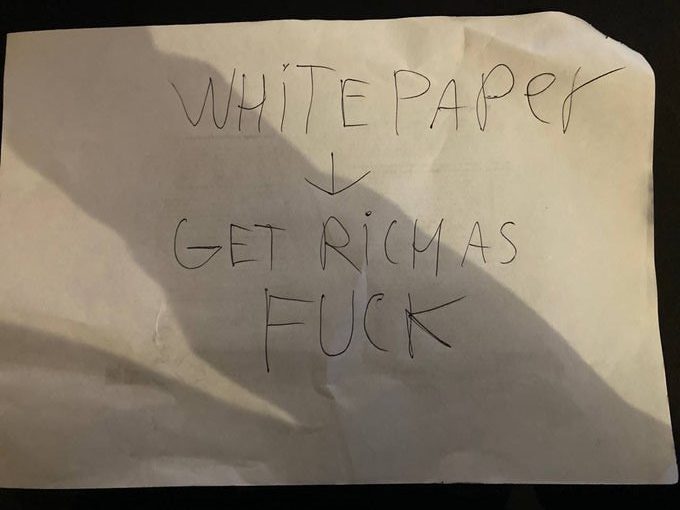 WHiTEPAPer
↓
GET RiCH AS
FUCK